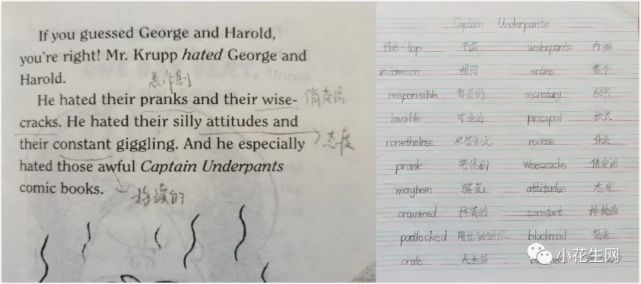 If you guessed George and Harold,
you're right! Mr. Krupp hated George and
Harold.
恶作剧
He hated their pranks and their wise- 俏皮话
cracks. He hated their silly attitudes and
态度
their constant giggling. And he especially
hated those awful Captain Underpants
comic books.
持续的
Captain Underpants
flat-top 平顶 underpants 内裤
in common 相同 entire 整个
responsible 负责的 secretary 秘书
lovable 可爱的 principal 校长
nonetheless 尽管如此 recess
prank 恶作剧 wisecracks 俏皮话
mayhem attitudes 态度
crammed constant 持续的
padlocked blackmail
crate 大木箱
小花生网